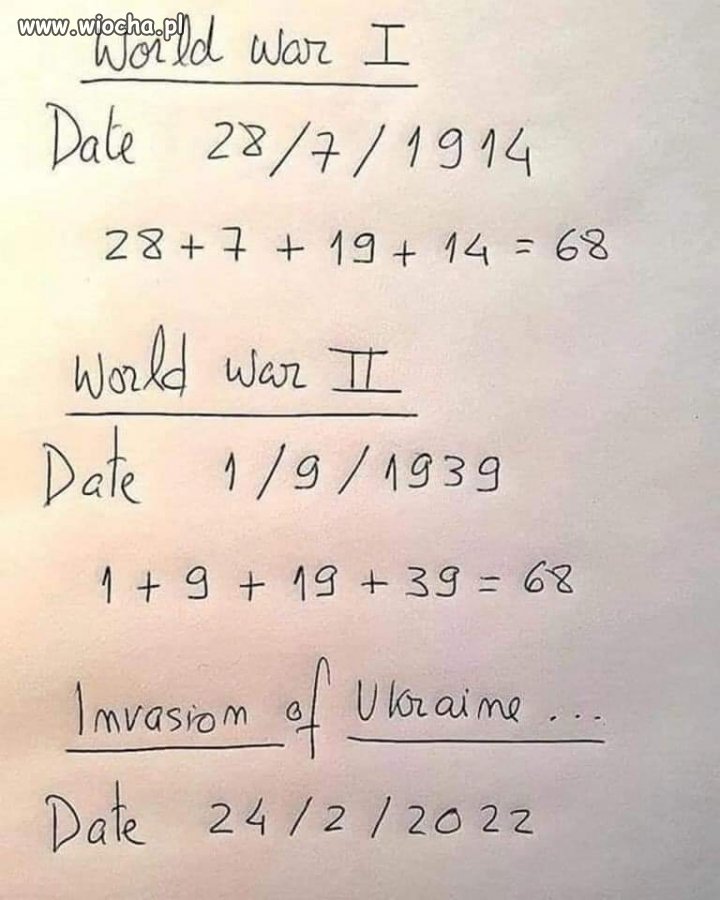 www.wiocha.pl
World War I
Date 28/7/1914
28+7+19+14=68
World War II
Date 1/9/1939
1+9+19+39=68
Invasion of Ukraine...
Date 24/2/2022